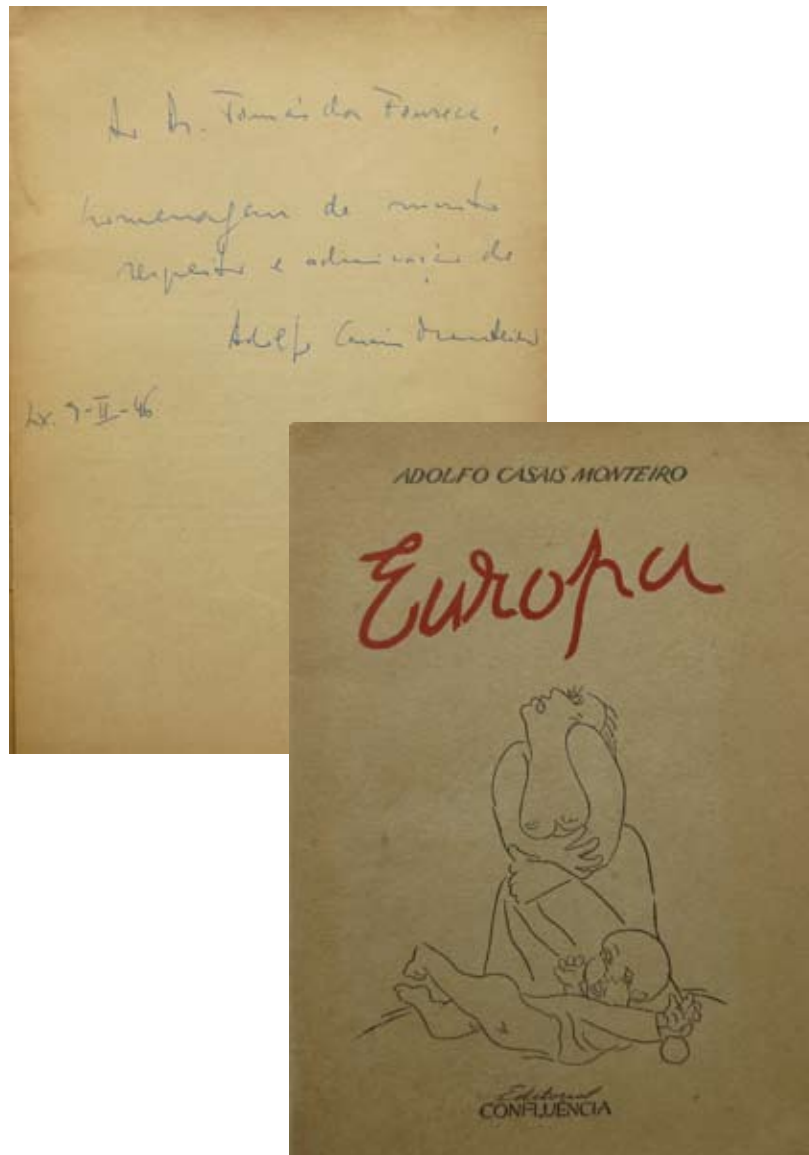 Ao Dr. Tomás da Fonseca,
homenagem de muito
respeito e admiração do
Adolfo Casais Monteiro
Lx. 9-II-46
ADOLFO CASAIS MONTEIRO
Europa
Editorial
CONFLUÊNCIA